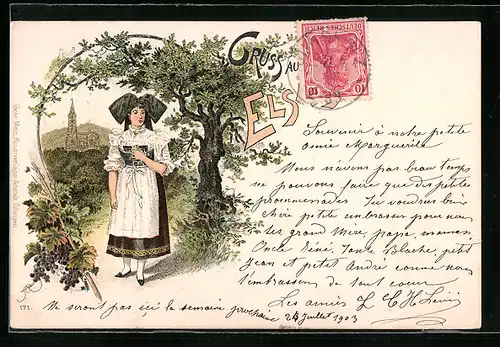 Gruss au
Elsa
DEUTSCHES REICH
10 10
Souvenir à notre petite
amie Marguerite
Nous n'avons pas beau temps
ne pouvons faire que des petites
promenades
petite embrasser pour nous
tes grand Mère, papa, maman
Oncle René, Tante Blache petit
Jean et petit André comme nous
t'embrassons de tout coeur
Les amies L C H
Ne seront pas ici la semaine prochaine
24 Juillet 1903
171.